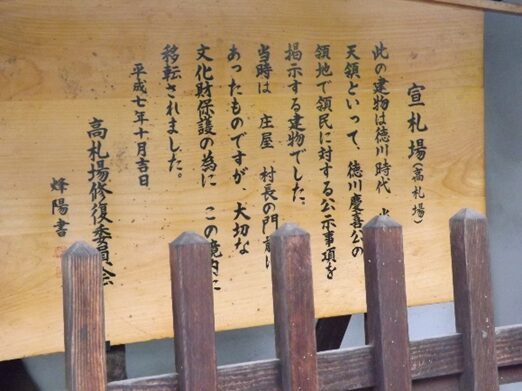 宣札場(高札場)
此の建物は徳川時代
天領といって、徳川慶喜公の
領地で領民に対する公示事項を
掲示する建物でした。
当時は 庄屋 村長の門前に
あったものですが、大切な
文化財保護の為に この境内に
移転されました。
平成七年十月吉日
高札場修復委員会
烽陽書